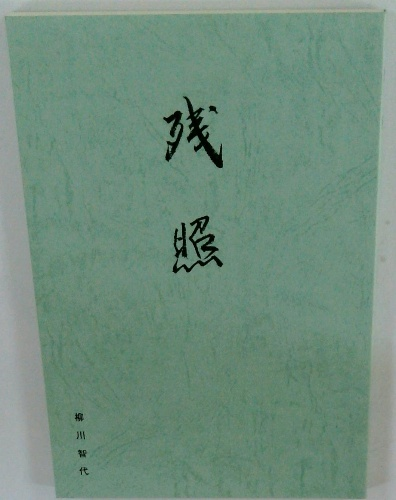 残照
柳川智代